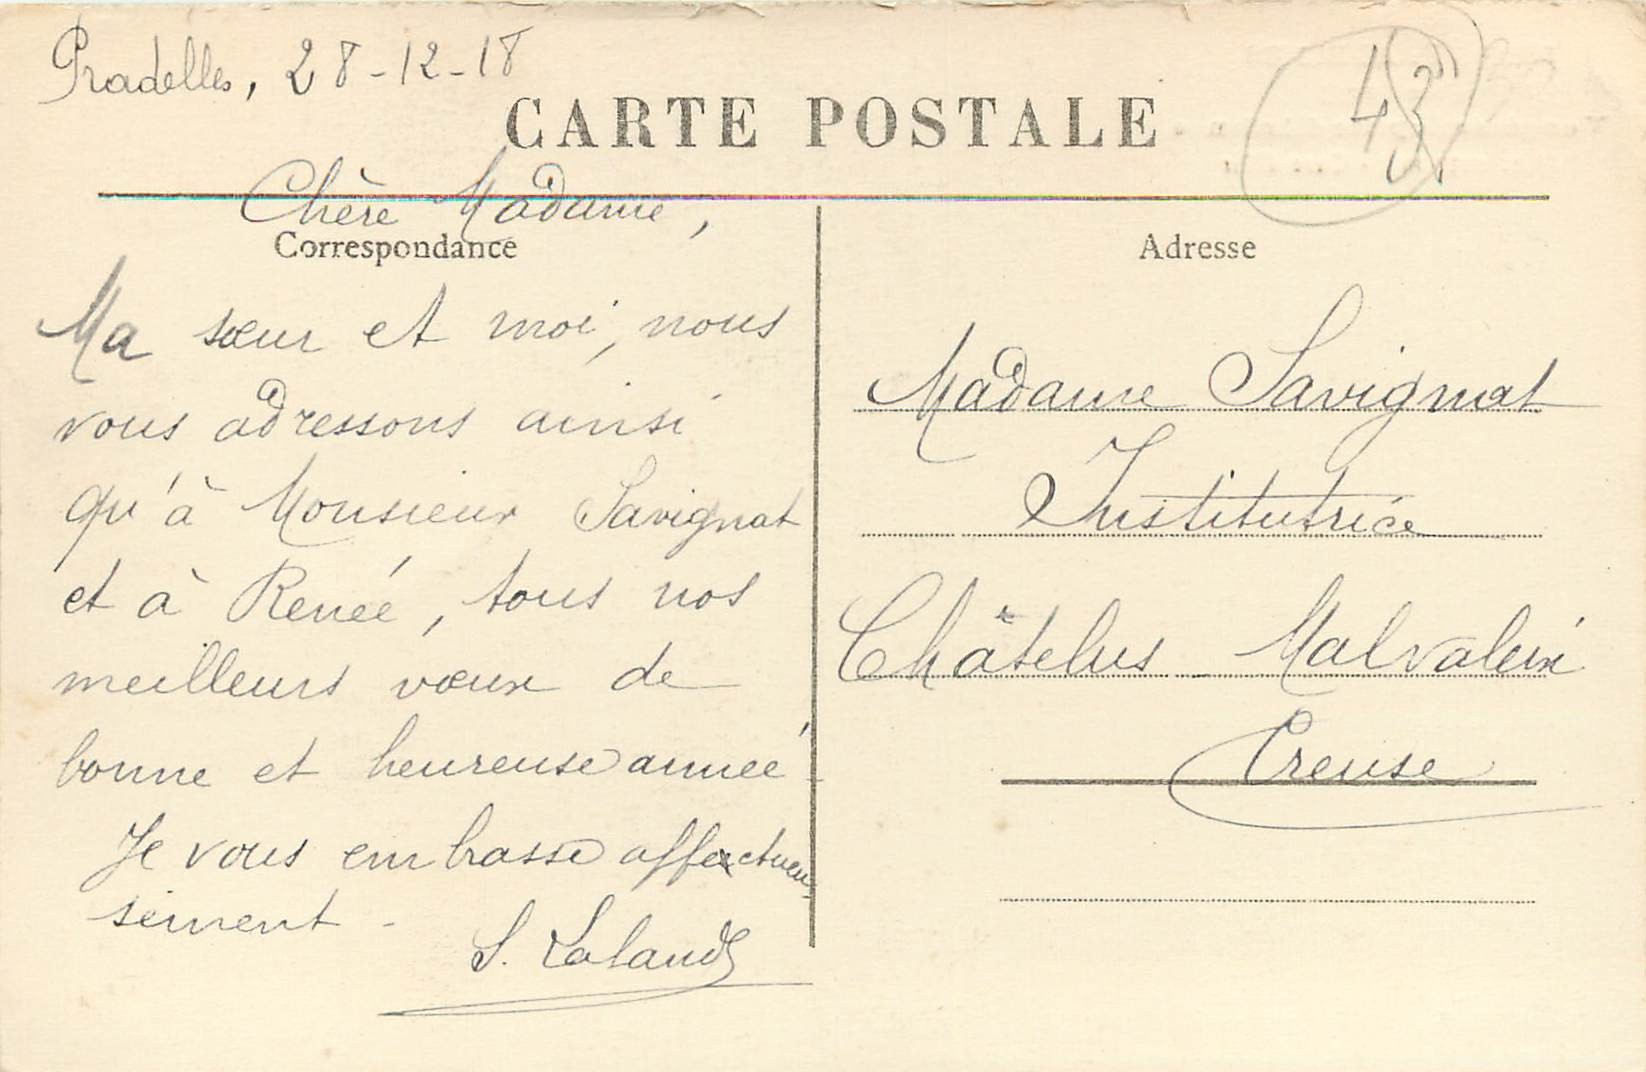 Pradelles, 28-12-18
43
CARTE POSTALE
Chère Madame,
Correspondance
Ma sœur et moi, nous
vous adressons ainsi
qu'à Monsieur Savignat
et à Renée, tous nos
meilleurs vœux de
bonne et heureuse année.
Je vous embrasse affectueu-
sement -
S. Lalande
Adresse
Madame Savignat
Institutrice
Châtelus Malvaleix
Creuse